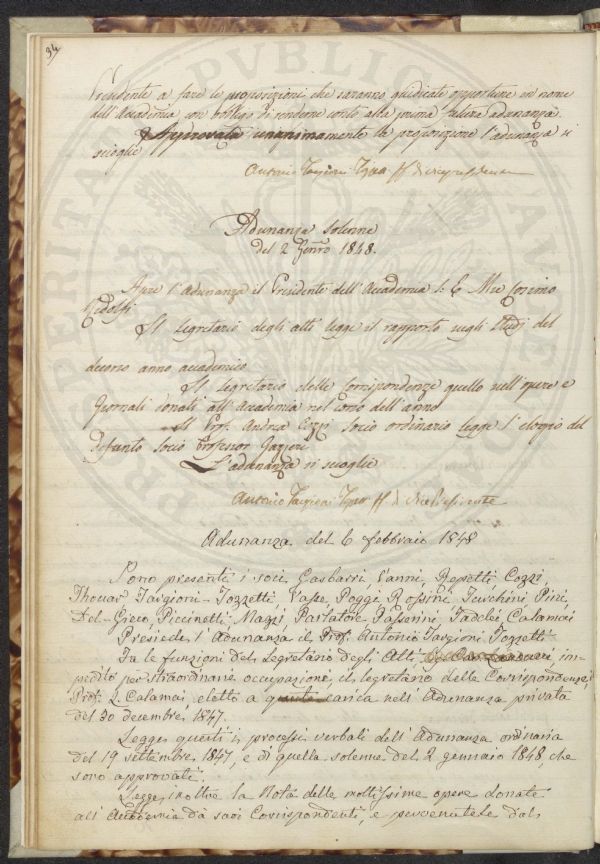 34
Presidente a fare le proposizioni che saranno giudicate opportune in nome
dell'Accademia, con obbligo di renderne conto alla prima futura adunanza.
Approvata unanimamente la proposizione l'adunanza si
scioglie
Antonio Targioni Tozzetti ff. di Vicepresidente
Adunanza solenne
del 2 Genro 1848.
Apre l'adunanza il Presidente dell'Accademia S. E. Mse Cosimo
Ridolfi
Il Segretario degli atti legge il rapporto sugli studj del
decorso anno accademico
Il Segretario delle Corrispondenze quello sull'opere e
Giornali donati all'Accademia nel corso dell'anno
Il Prof. Andrea Cozzi Socio ordinario legge l'elogio del
defunto Socio Professor Gazzeri
L'adunanza si scioglie
Antonio Targioni Tozzetti ff. di Vice Presidente
Adunanza del 6 febbraio 1848
Sono presenti i soci Gasbarri, Vanni, Repetti, Cozzi,
Thouar, Targioni-Tozzetti, Poggi, Rossini, Turchini, Pieri,
Del-Greco, Piccinetti, Mazzi, Passerini, Taddei, Calamai
Presiede l'Adunanza il Prof. Antonio Targioni Tozzetti
Fa le funzioni del Segretario degli Atti, im-
pedito per straordinarie occupazioni, il segretario delle Corrispondenze,
Prof. L. Calamai, eletto a questa carica nell'Adunanza privata
del 30 decembre 1847.
Legge questi i processi verbali dell'Adunanza ordinaria
del 19 settembre 1847, e di quella solenne del 2 gennaio 1848, che
sono approvati.
Legge inoltre la Nota delle moltissime opere donate
all'Accademia da suoi Corrispondenti, e pervenutele dal-